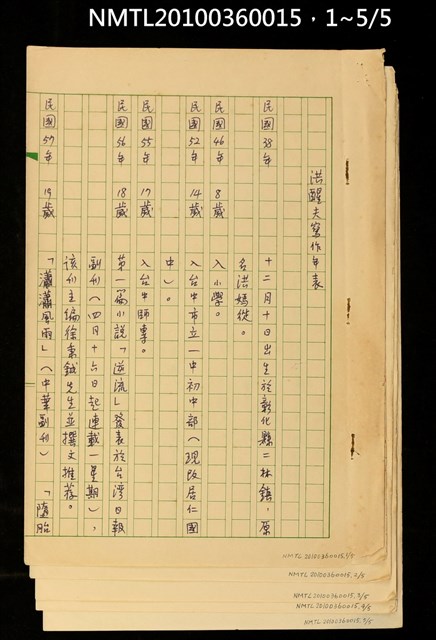 NMTL20100360015，1~5/5
洪醒夫寫作年表
民國38年 十二月十日出生於彰化縣二林鎮，原
名洪媽從。
民國46年 8歲 入小學。
民國52年 14歲 入台中市立一中初中部（現改居仁國
中）。
民國55年 17歲 入台中師專。
民國56年 18歲 第一篇小說「逆流」發表於台灣日報
副刊（四月十六日起連載一星期），
該刊主編徐秉鉞先生並撰文推荐。
民國57年 19歲 「瀟瀟風雨」（中華副刊） 「墮胎
NMTL20100360015,1/5
NMTL20100360015,2/5
NMTL20100360015,3/5
NMTL20100360015,4/5
NMTL20100360015,5/5